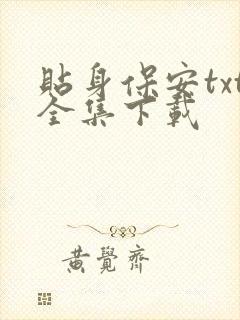 貼身保安txt
全集下載
黃覺齊